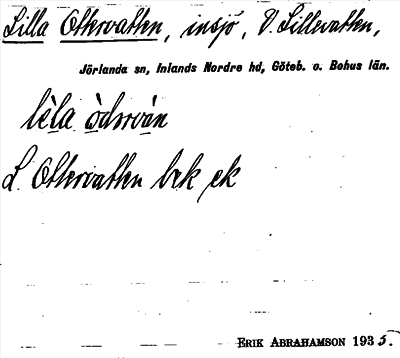 Lilla Ottervatten, insjö, V. Lillevatten,
Jörlanda sn, Inlands Nordre hd, Göteb. o. Bohus län.
lèla
L. Ottervatten bek ek
ERIK ABRAHAMSON 1935.